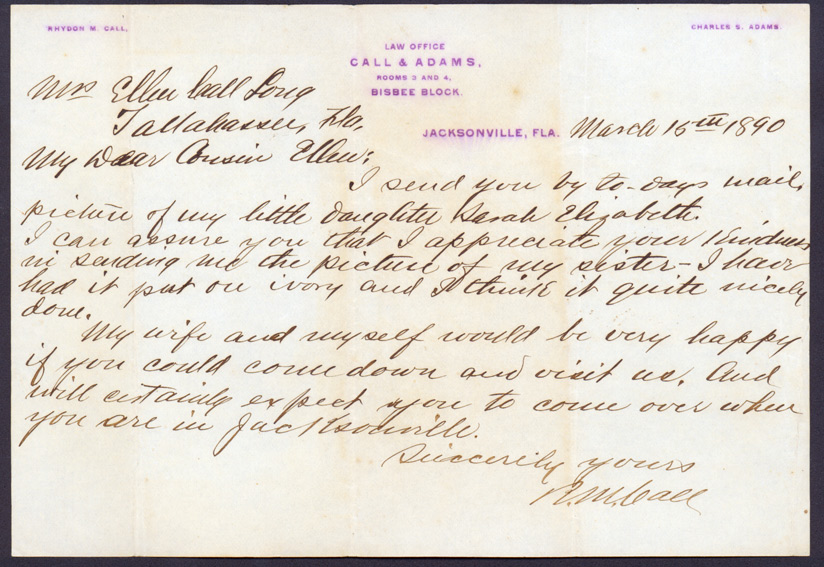 RHYDON M. CALL,
CHARLES S. ADAMS.
LAW OFFICE
CALL & ADAMS,
ROOMS 3 AND 4,
BISBEE BLOCK.
JACKSONVILLE, FLA. March 15th 1890
Mrs Ellen Call Long
Tallahassee, Fla.
My Dear Cousin Ellen:
I send you by to-days mail,
picture of my little daughter Sarah Elizabeth.
I can assure you that I appreciate your kindness
in sending me the picture of my sister - I have
had it put on ivory and I think it quite nicely
done.
My wife and myself would be very happy
if you could come down and visit us. And
will certainly expect you to come over when
you are in Jacksonville.
Sincerely yours
R. M. Call